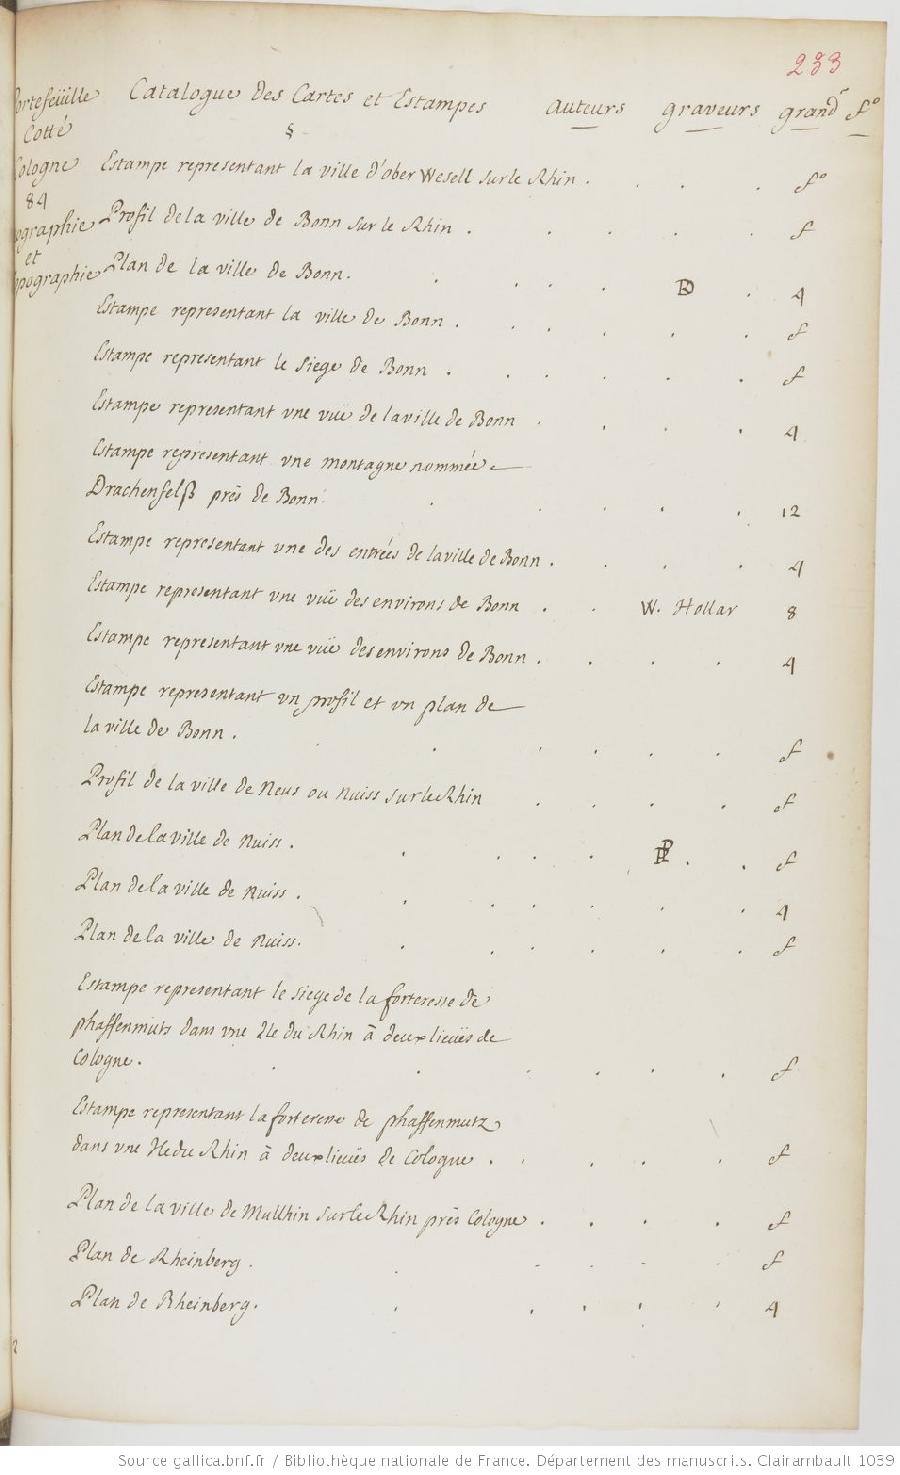 233
ortefeüille Catalogue des Cartes et Estampes auteurs graveurs grandr fo
Cotté §
ologne Estampe representant la ville d'ober Wesell sur le Rhin . . . . fo
84
ographie Profil de la ville de Bonn sur le Rhin . . . . . f
et
opographie Plan de la ville de Bonn. . . . . . 4
Estampe representant la ville de Bonn . . . . . . f
Estampe representant le siege de Bonn . . . . . . f
Estampe representant vne vuë de la ville de Bonn . . . . 4
Estampe representant vne montagne nommée
Drachenselß près de Bonn . . . . . . 12
Estampe representant vne des entrées de la ville de Bonn . . . . 4
Estampe representant vne vuë des environs de Bonn . . W. Hollar 8
Estampe representant vne vuë des environs de Bonn . . . . 4
Estampe representant vn profil et vn plan de
la ville de Bonn . . . . . . . f
Profil de la ville de Neus ou nuiss sur le Rhin . . . . f
Plan de la ville de nuiss . . . . . . . f
Plan de la ville de nuiss . . . . . . . 4
Plan de la ville de nuiss. . . . . . . f
Estampe representant le siege de la forteresse de
phaffenmuts dans vne Ile du Rhin à deux lieuës de
Cologne . . . . . . . f
Estampe representant la forteresse de phaffenmutz
dans vne Ile du Rhin à deux lieuës de Cologne . . . . . f
Plan de la ville de Mullhin sur le Rhin près Cologne . . . . f
Plan de Rheinberg . . . . . . f
Plan de Rheinberg . . . . . . 4
Source gallica.bnf.fr / Bibliothèque nationale de France. Département des manuscrits. Clairambault 1039